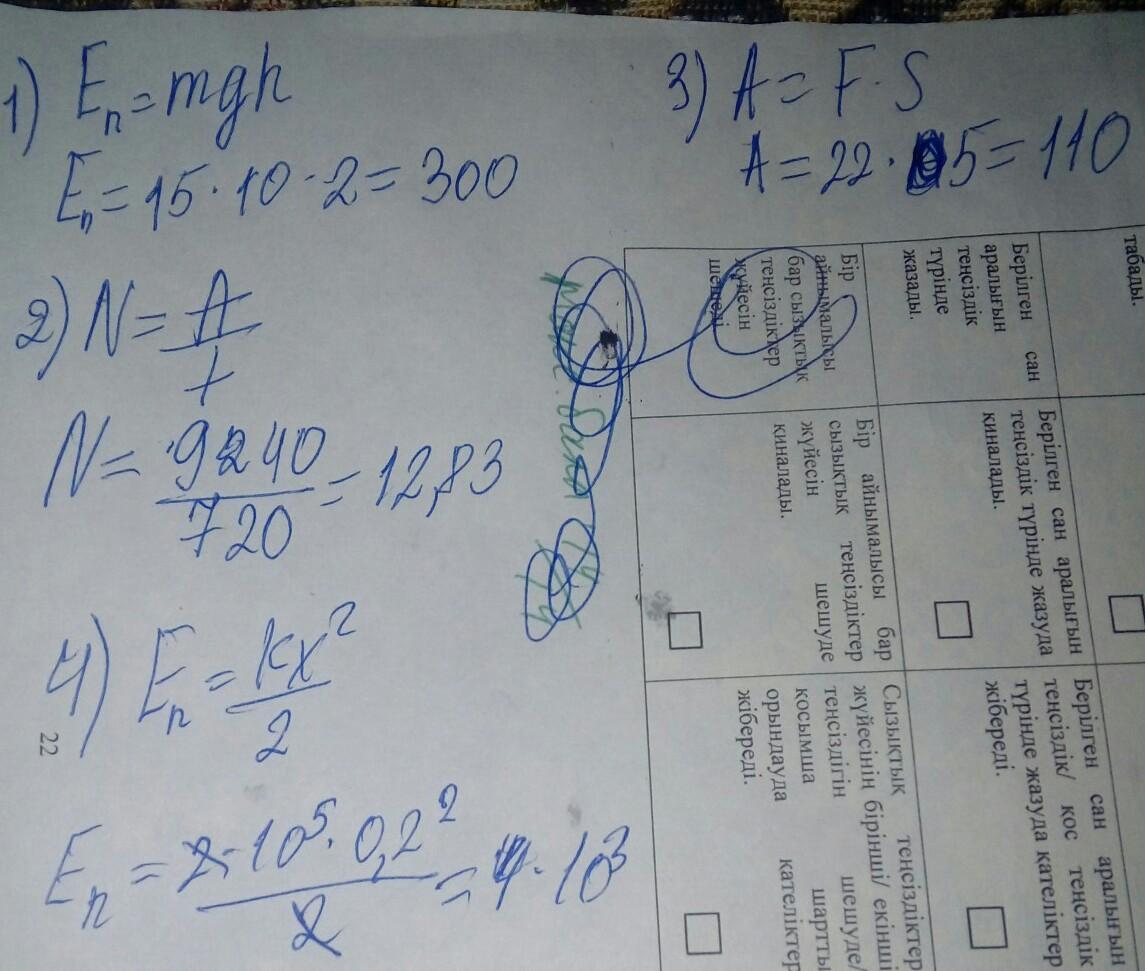 1) Eп = mgh
Eп = 15 · 10 · 2 = 300
2) N = A/t
N = 9240/720 = 12,83
3) A = F · S
A = 22 · 5 = 110
4) Eп = kx²/2
Eп = 2 · 10⁵ · 0,2²/2 = 4 · 10³
22
табады.
Берілген сан
аралығын
теңсіздік
түрінде
жазады.
Берілген сан аралығын
теңсіздік түрінде жазуда
қиналады.
Берілген сан аралығын
теңсіздік/ қос теңсіздік
түрінде жазуда қателіктер
жібереді.
Бір
айнымалысы
бар сызықтық
теңсіздіктер
жүйесін
шешеді
Бір айнымалысы бар
сызықтық теңсіздіктер
жүйесін шешуде
қиналады.
Сызықтық теңсіздіктер
жүйесінің бірінші/ екінші
теңсіздігін шешуде/
қосымша шартты
орындауда қателіктер
жібереді.